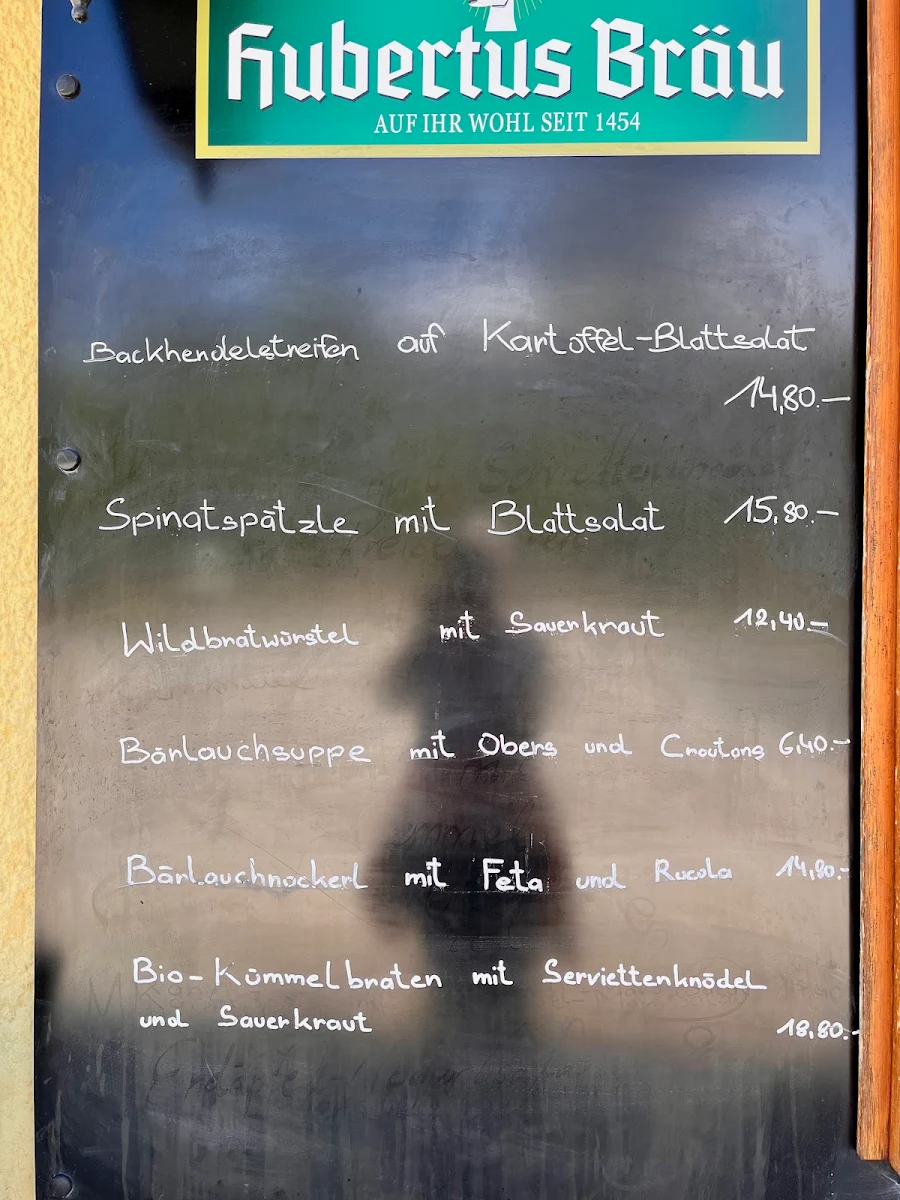 Hubertus Bräu
AUF IHR WOHL SEIT 1454
Backhendelstreifen auf Kartoffel-Blattsalat
14,80.—
Spinatspätzle mit Blattsalat 15,80.—
Wildbratwürstel mit Sauerkraut 12,40.—
Bärlauchsuppe mit Obers und Croutons 6,40.—
Bärlauchnockerl mit Feta und Rucola 14,80.-
Bio-Kümmelbraten mit Serviettenknödel
und Sauerkraut
18,80.-